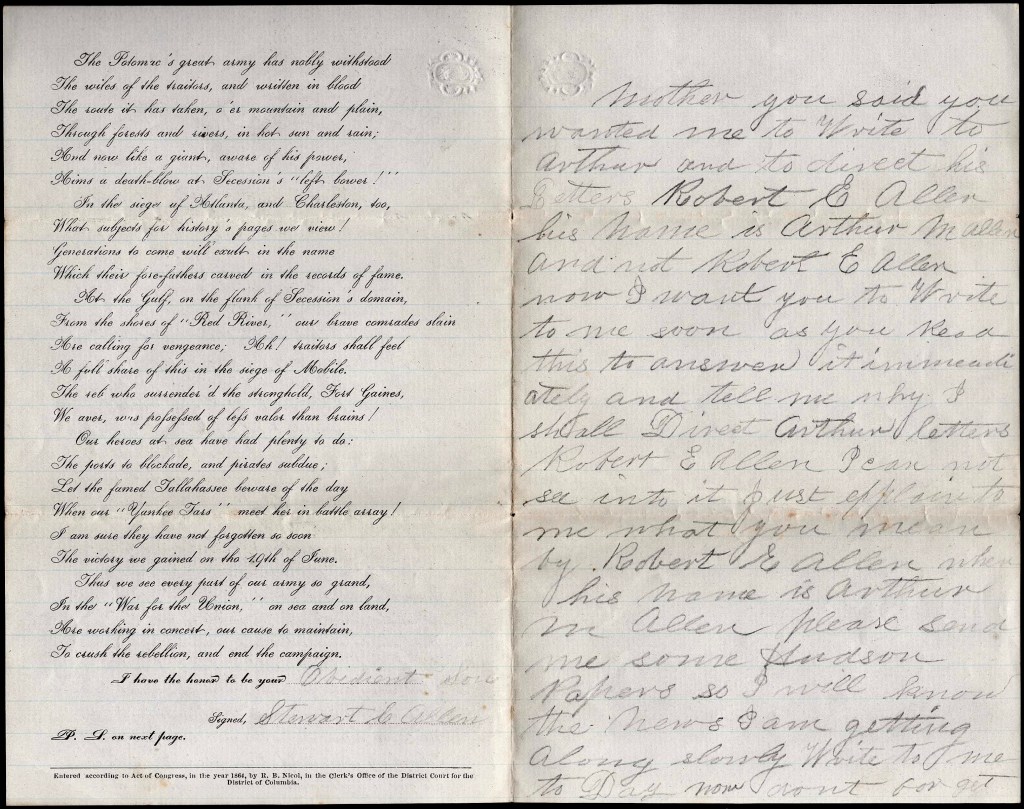 The Potomac's great army has nobly withstood
The wiles of the traitors, and written in blood
The route it has taken, o'er mountain and plain,
Through forests and rivers, in hot sun and rain;
And now like a giant, aware of his power,
Aims a death-blow at Secession's "left bower!"
In the siege of Atlanta, and Charleston, too,
What subjects for history's pages we view!
Generations to come will exult in the name
Which their fore-fathers carved in the records of fame.
At the Gulf, on the flank of Secession's domain,
From the shores of "Red River," our brave comrades slain
Are calling for vengeance; Ah! traitors shall feel
A full share of this in the siege of Mobile.
The reb who surrender'd the stronghold, Fort Gaines,
We aver, was poſseſsed of leſs valor than brains!
Our heroes at sea have had plenty to do:
The ports to blockade, and pirates subdue;
Let the famed Tallahassee beware of the day
When our "Yankee Tars" meet her in battle array!
I am sure they have not forgotten so soon
The victory we gained on the 19th of June.
Thus we see every part of our army so grand,
In the "War for the Union," on sea and on land,
Are working in concert, our cause to maintain,
To crush the rebellion, and end the campaign.
I have the honor to be your Obedient Son
Signed, Stewart C Allen
P. S. on next page.
Entered according to Act of Congress, in the year 1864, by R. B. Nicol, in the Clerk's Office of the District Court for the
District of Columbia.
Mother you said you
wanted me to Write to
Arthur and to direct his
Letters Robert E Allen
his name is Arthur M Allen
and not Robert E Allen
now I want you to Write
to me soon as you Read
this to answer it immeadi
ately and tell me why I
shall Direct Arthur letters
Robert E Allen I can not
see into it Just explain to
me what you mean
by Robert E Allen when
his name is Arthur
M Allen please send
me some Hudson
Papers so I will know
the News I am getting
along slowly Write to me
to Day now dont for get